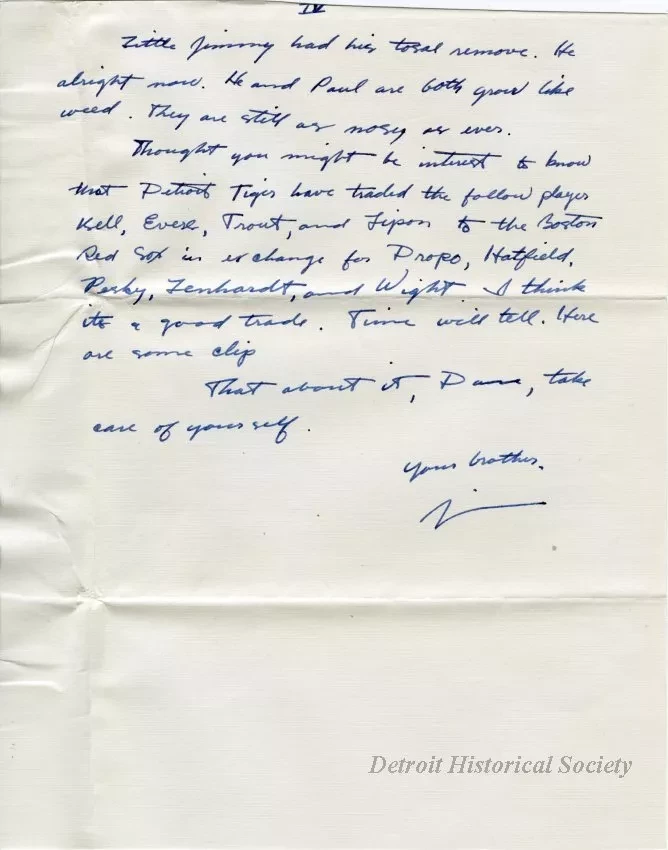 IV
Little Jimmy had his tosal remove. He
alright now. He and Paul are both grow like
weed. They are still as nosey as ever.
Thought you might be interest to know
that Detroit Tiger have traded the follow player
Kell, Evers, Trout, and Lipon to the Boston
Red Sox in exchange for Dropo, Hatfield,
Pesky, Lenhardt, and Wight I think
its a good trade. Time will tell. Here
are some clip
That about it, Dave, take
care of yourself.
Your brother,
Detroit Historical Society